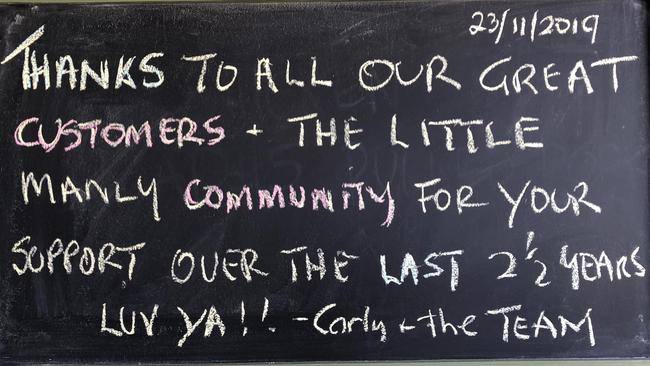 23/11/2019
THANKS TO ALL OUR GREAT
CUSTOMERS + THE LITTLE
MANLY COMMUNITY FOR YOUR
SUPPORT OVER THE LAST 2 1/2 YEARS
LUV YA!! - Carly + the TEAM